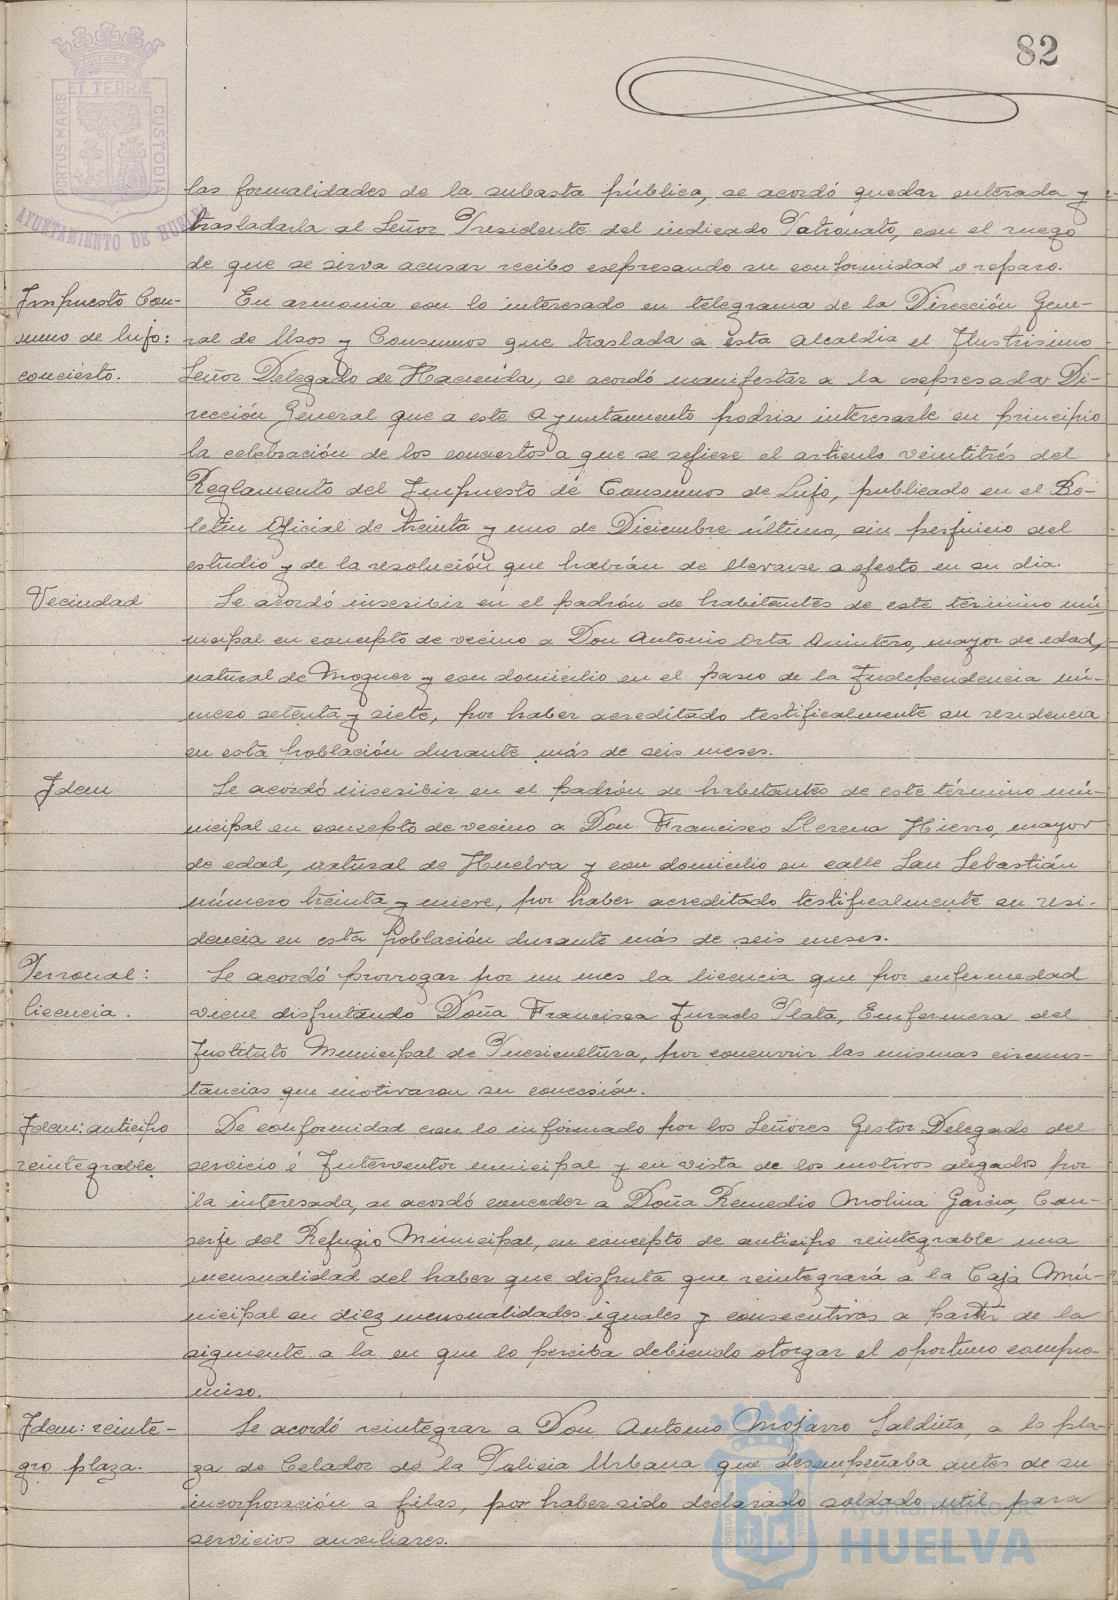 82
ET TERRÆ
PORTUS MARIS
CUSTODIA
AYUNTAMIENTO DE HUELVA
las formalidades de la subasta pública, se acordó quedar enterada y
trasladarla al Señor Presidente del indicado Patronato, con el ruego
de que se sirva acusar recibo expresando su conformidad o reparo.
Impuesto Con-
sumo de lujo:
concierto.
En armonia con lo interesado en telegrama de la Dirección Gene-
ral de Usos y Consumos que traslada a esta Alcaldia el Ilustrisimo
Señor Delegado de Hacienda, se acordó manifestar a la expresada Di-
rección General que a este Ayuntamiento podria interesarle en principio
la celebración de los conciertos a que se refiere el articulo veintitrés del
Reglamento del Impuesto de Consumos de Lujo, publicado en el Bo-
letin Oficial de treinta y uno de Diciembre último, sin perjuicio del
estudio y de la resolución que habrán de llevarse a efecto en su dia.
Vecindad
Se acordó inscribir en el padrón de habitantes de este término mu-
nicipal en concepto de vecino a Don Antonio Orta Quintero, mayor de edad,
natural de Moguer y con domicilio en el paseo de la Independencia nú-
mero setenta y siete, por haber acreditado testificalmente su residencia
en esta población durante más de seis meses.
Idem
Se acordó inscribir en el padrón de habitantes de este término mu-
nicipal en concepto de vecino a Don Francisco Llerena Hierro, mayor
de edad, natural de Huelva y con domicilio en calle San Sebastián
número treinta y nueve, por haber acreditado testificalmente su resi-
dencia en esta población durante más de seis meses.
Personal:
licencia.
Se acordó prorrogar por un mes la licencia que por enfermedad
viene disfrutando Doña Francisca Jurado Plata, Enfermera del
Instituto Municipal de Puericultura, por concurrir las mismas circuns-
tancias que motivaron su concesión.
Idem: anticipo
reintegrable
De conformidad con lo informado por los Señores Gestor Delegado del
servicio é Interventor municipal y en vista de los motivos alegados por
la interesada, se acordó conceder a Doña Remedio Molina Garcia, Con-
serje del Refugio Municipal, en concepto de anticipo reintegrable una
mensualidad del haber que disfruta que reintegrará a la Caja Mu-
nicipal en diez mensualidades iguales y consecutivas a partir de la
siguiente a la en que lo perciba debiendo otorgar el oportuno compro-
miso.
Idem: reinte-
gro plaza.
Se acordó reintegrar a Don Antonio Mojarro Saldiña, a la pla-
za de Celador de la Policia Urbana que desempeñaba antes de su
incorporación a filas, por haber sido declarado soldado util para
servicios auxiliares.
Ayuntamiento de
HUELVA